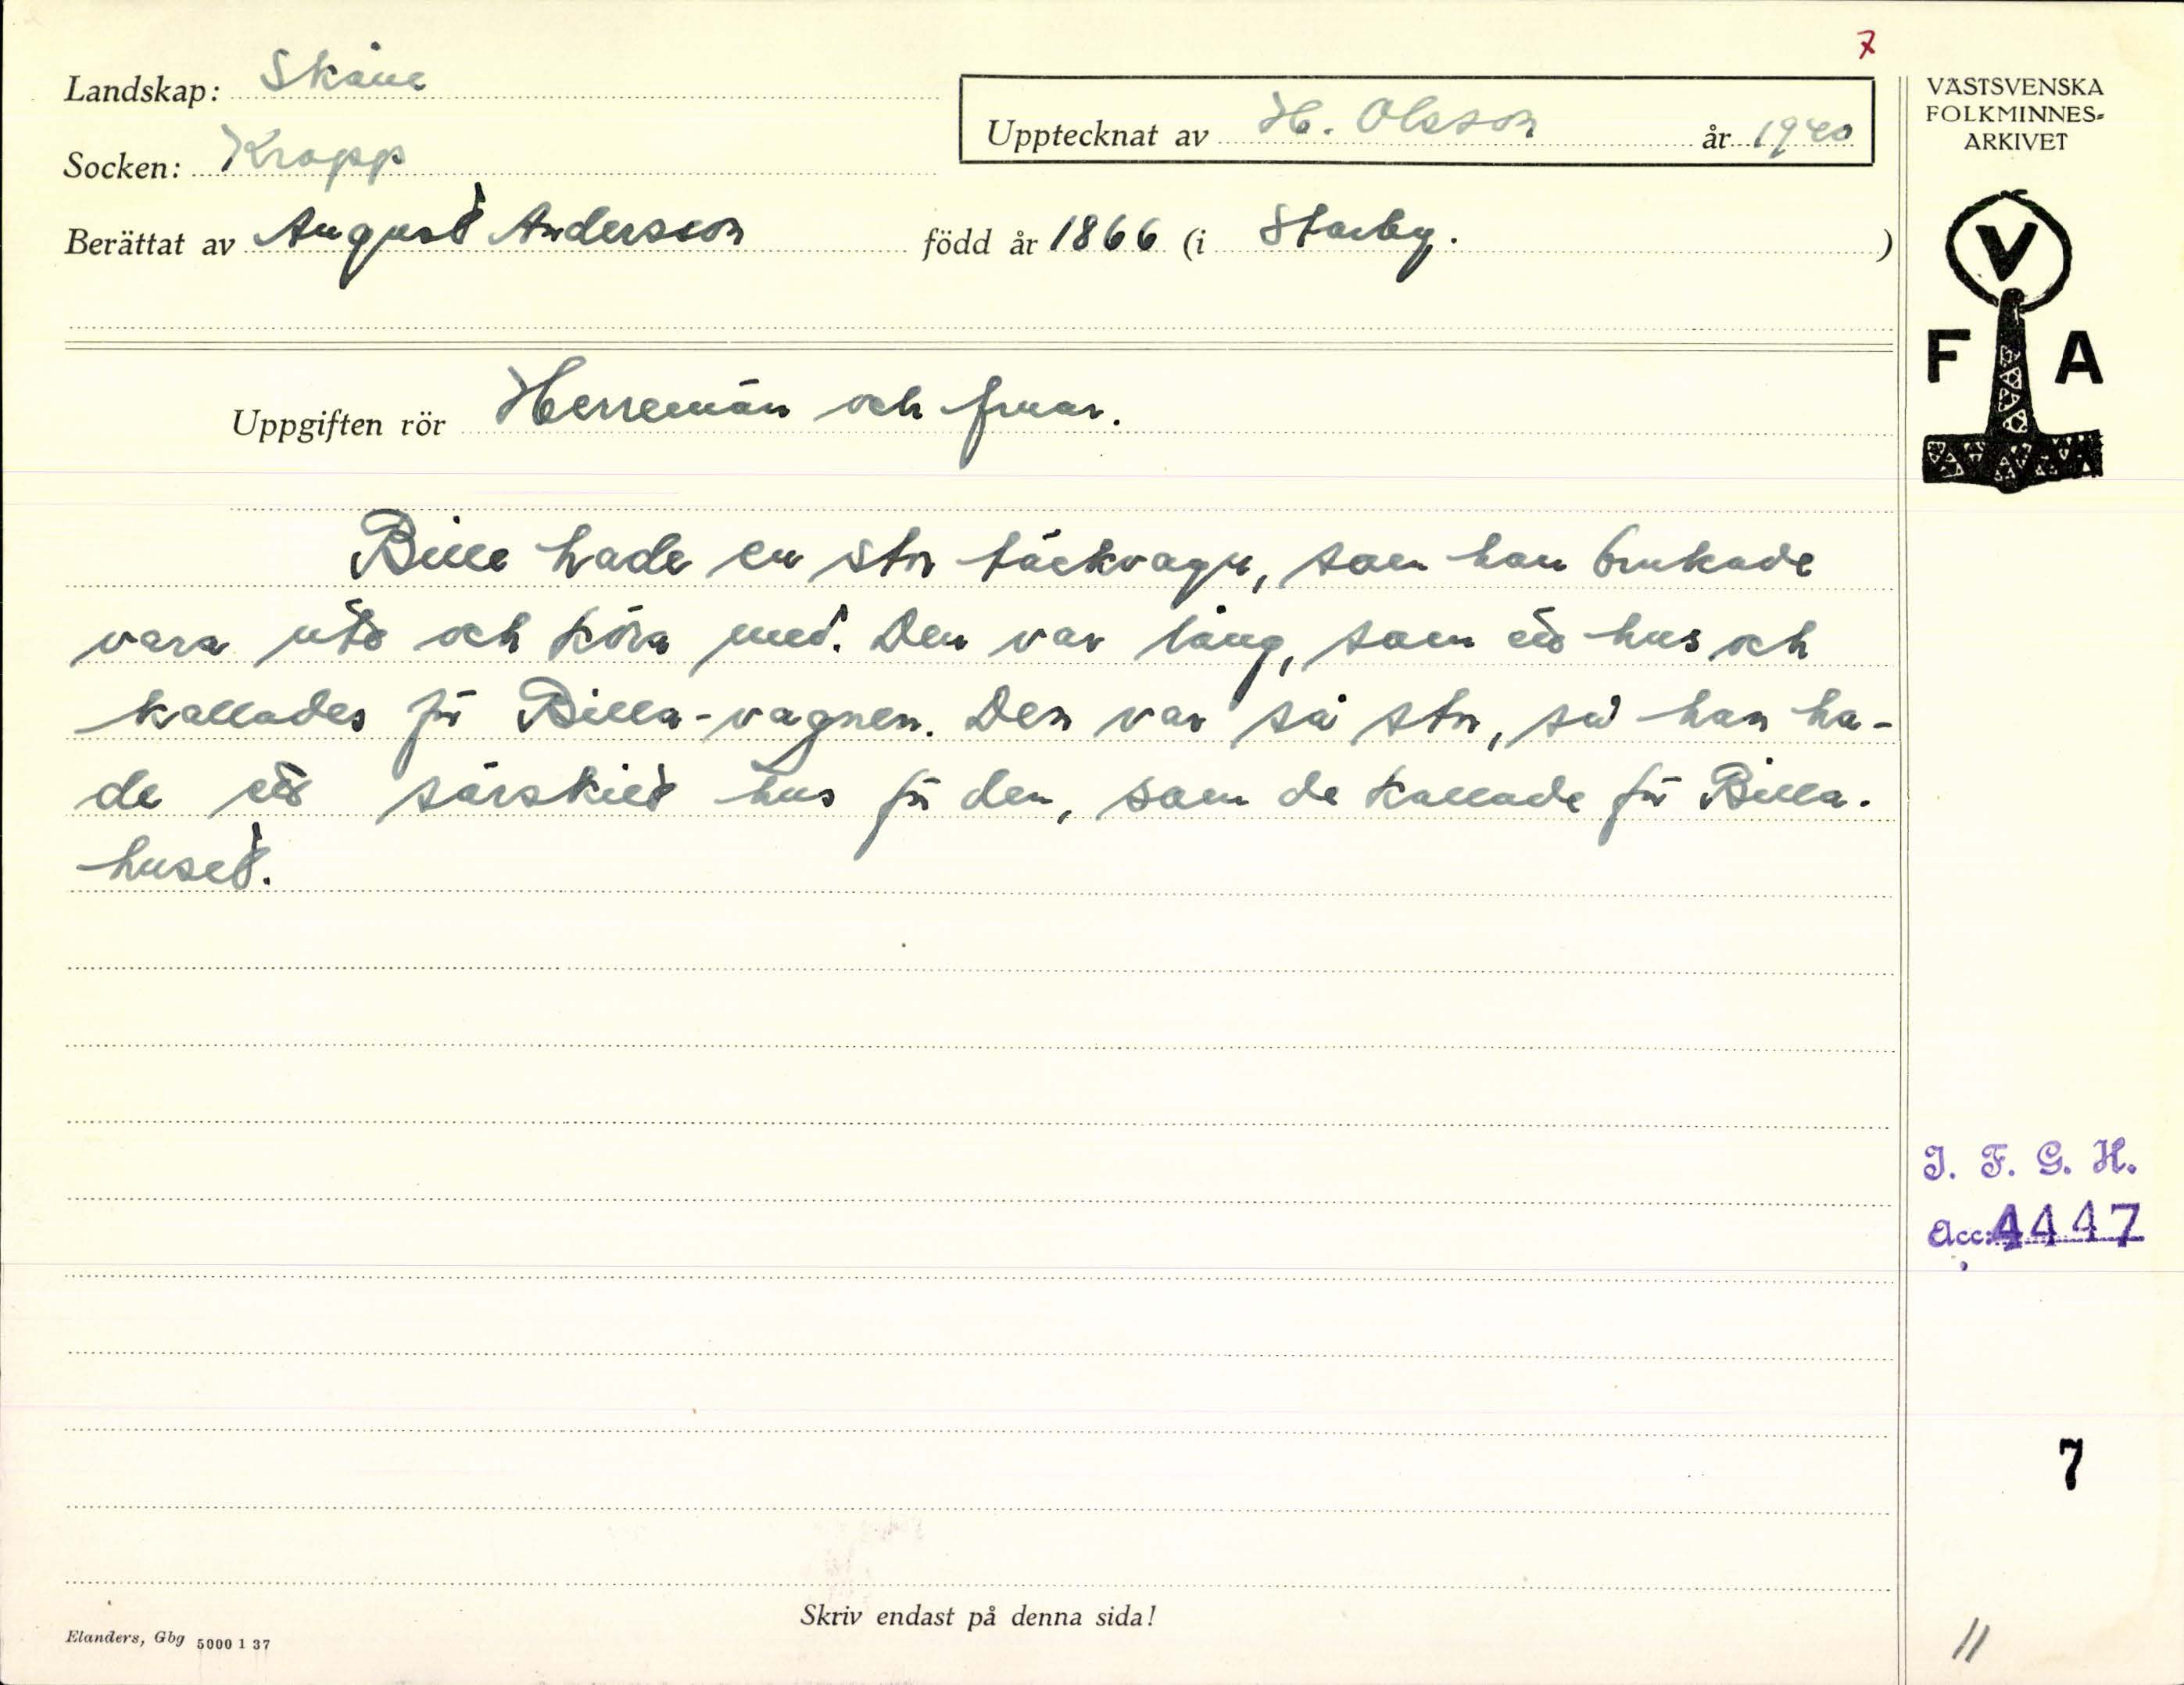 7
Landskap: Skåne
Upptecknat av H. Olsson år 1940
Socken: Kropp
Berättat av August Andersson född år 1866 (i Starby. )
Uppgiften rör Herremän och fruar.
Bille hade en stor täckvagn, som han brukade
vara ute och köra med. Den var lång, som ett hus och
kallades för Billa-vagnen. Den var så stor, så han ha-
de ett särskilt hus för den, som de kallade för Billa-
huset.
Skriv endast på denna sida!
Elanders, Gbg 5000 1 37
VÄSTSVENSKA
FOLKMINNES-
ARKIVET
V
F A
I. F. G. H.
Acc: 4447
7
11